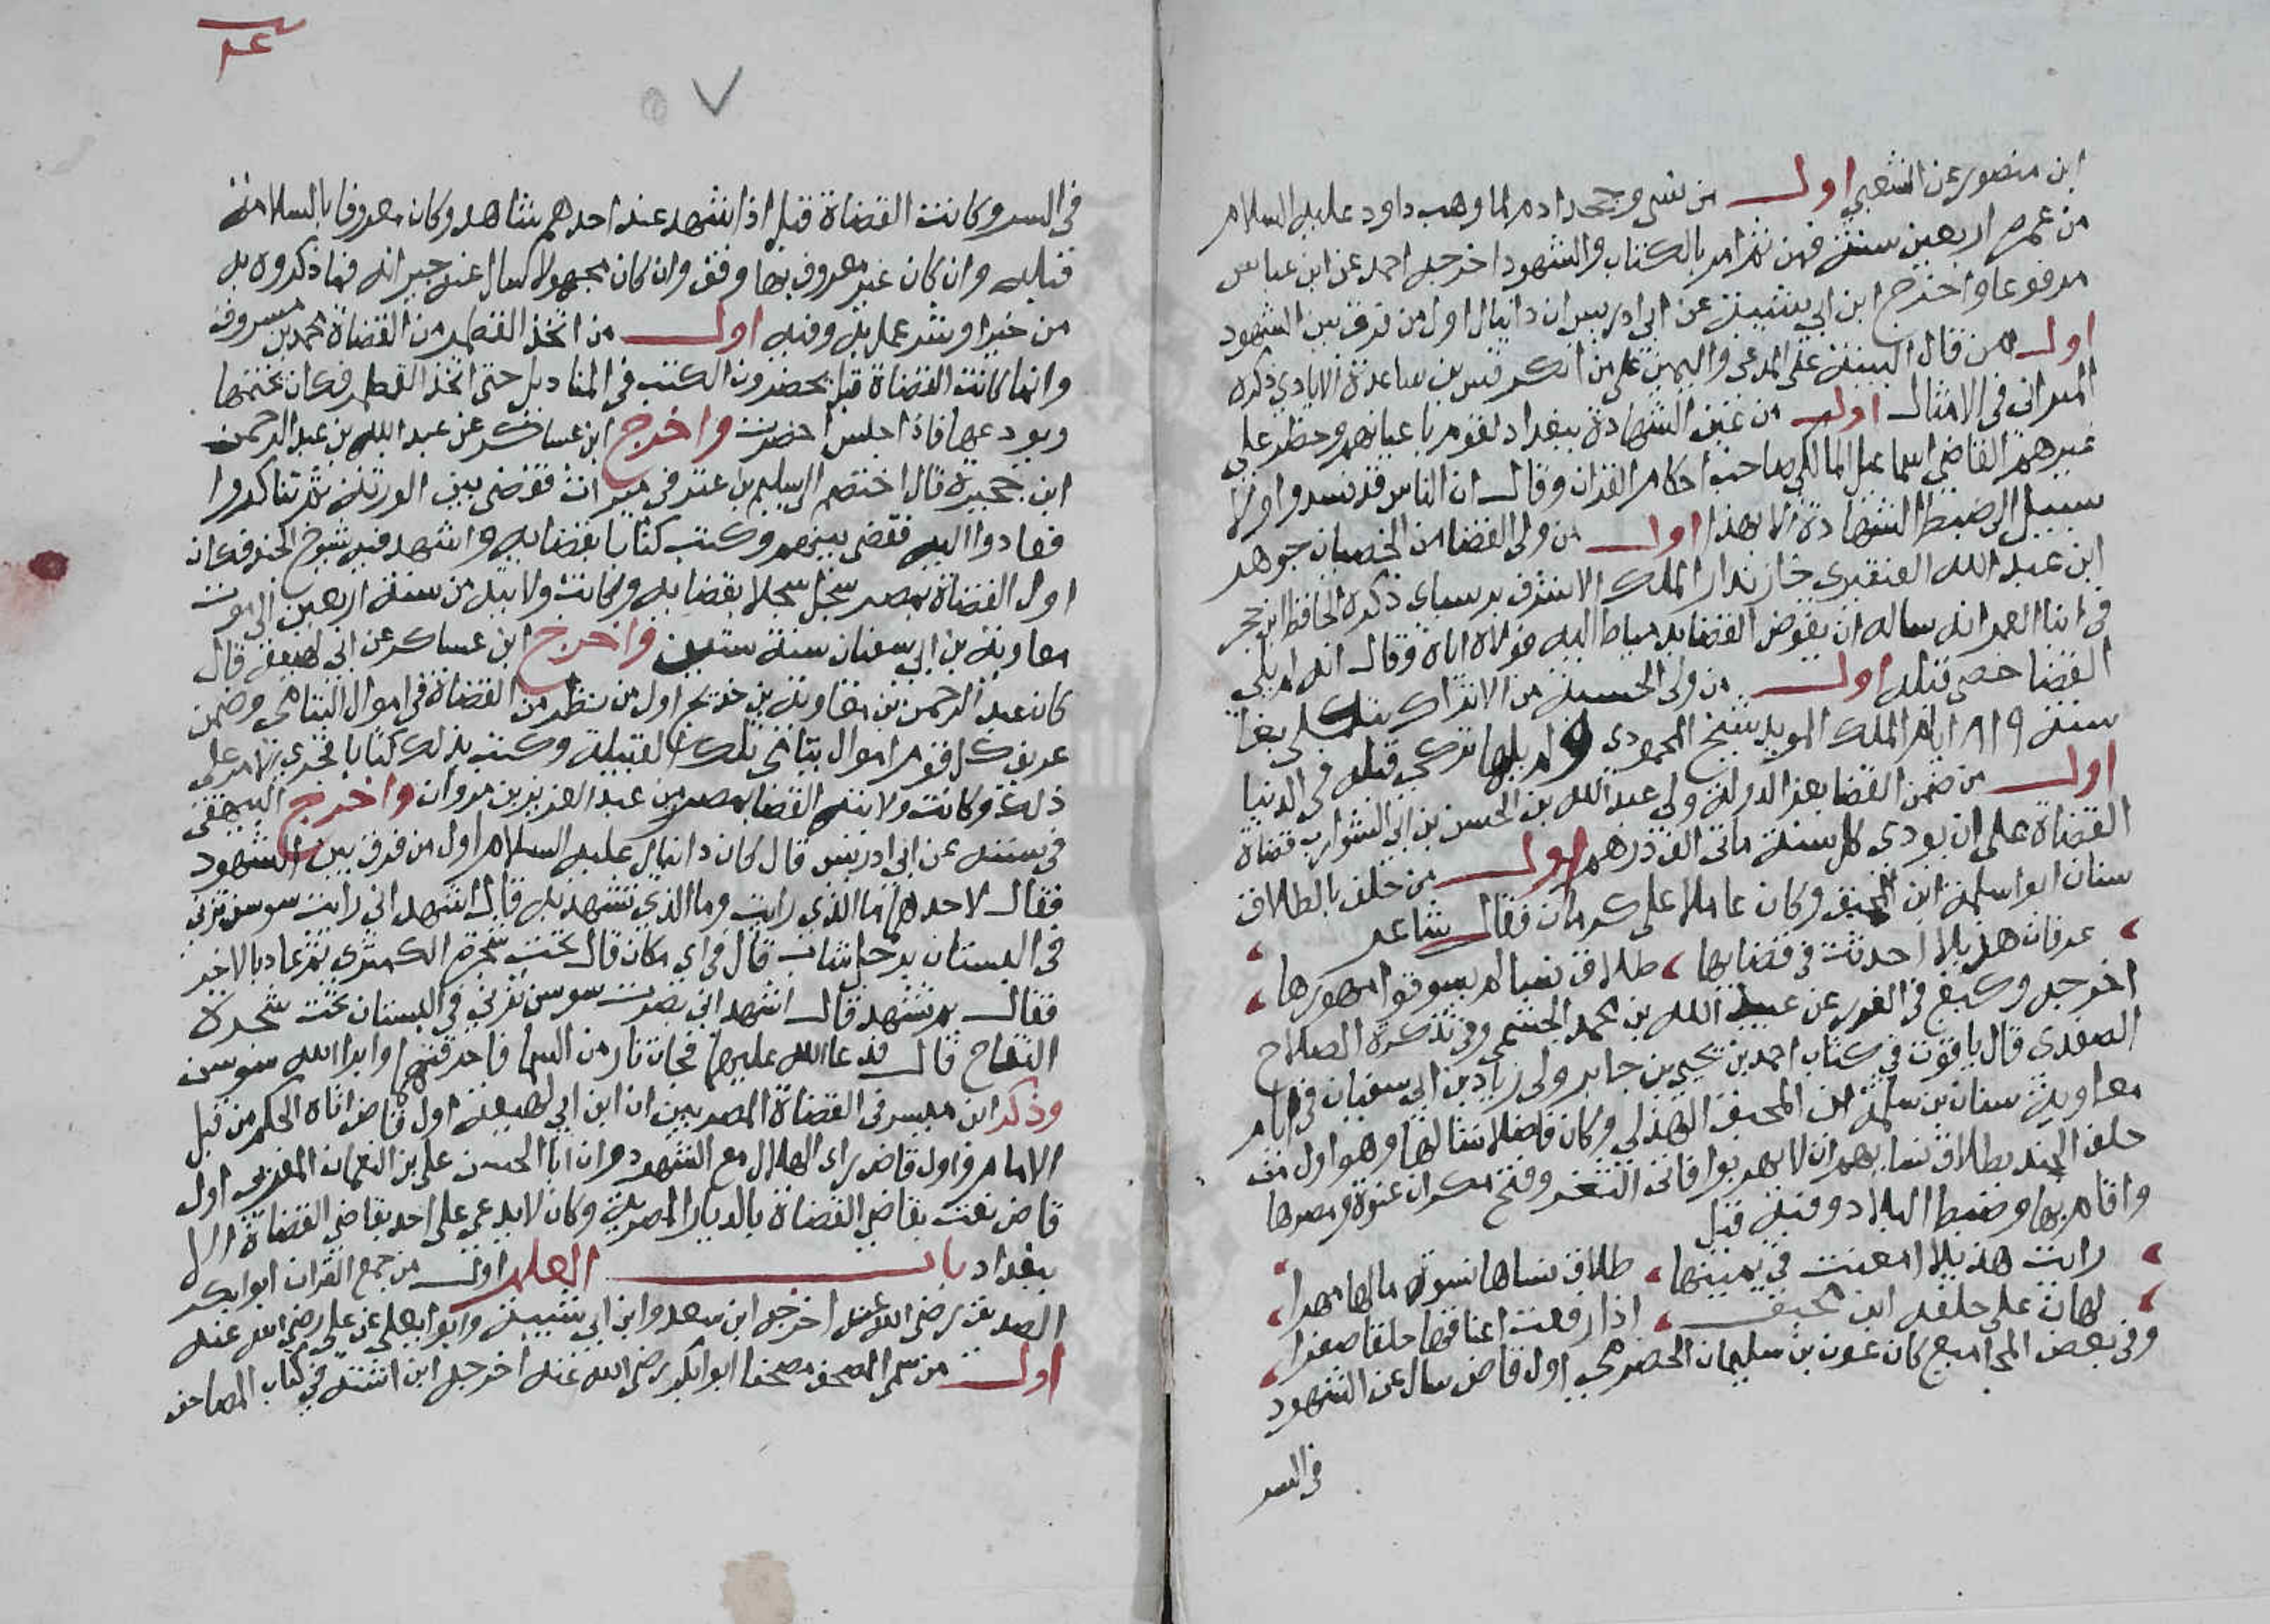 ابن منصور عن الشعبي اول من نسي وجحد ادم لما وهب داود عليه السلام
من عمره اربعين سنة فمن ثم امر بالكتاب والشهود اخرجه احمد عن ابن عباس
مرفوعا واخرج ابن ابي شيبة عن ابي ادريس ان دانيال اول من فرق بين الشهود
اول من قال البينة على المدعي واليمين على من انكر قس بن ساعدة الايادي ذكره
الميداني في الامثال اول من عين الشهادة ببغداد لقوم باعيانهم وحظر على
غيرهم القاضي اسماعيل المالكي صاحب احكام القران وقال ان الناس قد فسدوا ولا
سبيل الى ضبط الشهادة الا بهذا اول من ولى القضا من الخصيان جوهر
ابن عبد الله القنقبري خازندار الملك الاشرف برسباي ذكره الحافظ ابن حجر
في انبا الغمر انه ساله ان يفوض القضا بدمياط اليه فولاه اياه وقال انه لم يلي
القضا خصي قبله اول من ولى الحسبة من الاتراك منكلي بغا
سنة ٨١٩ ايام الملك المويد شيخ المحمودي ولم يلها تركي قبله في الدنيا
اول من ضمن القضا معز الدولة ولى عبد الله بن الحسن بن ابي الشوارب قضاة
القضاة على ان يودي كل سنة ماتى الف درهم اول من حلف بالطلاق
سنان ابو اسلمة ابن المحبق وكان عاملا على كرمان فقال شاعر
عرفان هذيلا احدثت في قضايها ، طلاق نسا لم يسوقوا مهورها
اخرجه وكيع في الغرر عن عبيد الله بن محمد الجشمي وفي تذكرة الصلاح
الصفدي قال ياقوت في كتاب احمد بن يحيى بن جابر ولى زياد بن ابي سفيان في ايام
معاوية سنان بن سلمة ابن المحبق الهذلي وكان فاضلا متالها وهو اول من
حلف الجند بطلاق نسايهم ان لا يهربوا فاتى الثغر وفتح مكران عنوة ومصرها
واقام بها وضبط البلاد وفيه قيل
رايت هذيلا امعنت في يمينها ، طلاق نساها نسوة ما لها مهرا
لهان على حلفة ابن محبق ، اذا رفعت اعناقها حلقا صفرا
وفي بعض المجاميع كان عون بن سليمان الحضرمي اول قاض سال عن الشهود
في السر
في السر وكانت القضاة قبل اذا شهد عند احدهم شاهد وكان معروفا بالسلامة
قبله وان كان غير معروف بها وقف وان كان مجهولا سال عنه جيرانه فما ذكروه به
من خير او شر عمل به وفيه اول من اتخذ القمطر من القضاة محمد بن مسروق
وانما كانت القضاة قبل يحضرون الكتب في المناديل حتى اتخذ القمطر فكان يختمها
ويودعها فاذا جلس احضرت واخرج ابن عساكر عن عبد الله بن عبد الرحمن
ابن حجيرة قال اختصم الى سليم بن عتر في ميراث فقضى بين الورثة ثم تناكروا
فعادوا اليه فقضى بينهم وكتب كتابا بقضايه واشهد فيه شيوخ الجند فكان
اول القضاة بمصر سجل سجلا بقضايه وكانت ولايته من سنة اربعين الى موت
معاوية بن ابي سفيان سنة ستين واخرج ابن عساكر عن ابي لهيعة قال
كان عبد الرحمن بن معاوية بن خديج اول من نظر من القضاة في اموال اليتامى وضمن
عريف كل قوم اموال يتامى تلك القبيلة وكتب بذلك كتابا فجرى الامر على
ذلك وكانت ولايته القضا بمصر من عبد العزيز بن مروان واخرج البيهقي
في سننه عن ابي ادريس قال كان دانيال عليه السلام اول من فرق بين الشهود
فقال لاحدهما ما الذي رايت وما الذي تشهد به قال اشهد اني رايت سوسن تزني
في البستان برجل شاب قال في اي مكان قال تحت شجرة الكمثري ثم عاد بالاخر
فقال بم تشهد قال اشهد اني بصرت سوسن تزني في البستان تحت شجرة
التفاح قال فدعا الله عليهما فجات نار من السما فاحرقتهما وابرا الله سوسن
وذكر ابن ميسر في القضاة المصريين ان ابن ابي لهيعة اول قاض اتاه الحكم من قبل
الامام واول قاض راى الهلال مع الشهود وان ابا الحسن علي بن النعمان المغربي اول
قاض نعت بقاضي القضاة بالديار المصرية وكان لا يدعى على احد بقاضي القضاة الا
ببغداد باب العلم اول من جمع القران ابو بكر
الصديق رضي الله عنه اخرجه ابن سعد وابن ابي شيبة وابو يعلى عن علي رضي الله عنه
اول من سمى المصحف مصحفا ابو بكر رضي الله عنه اخرجه ابن اشتة في كتاب المصاحف